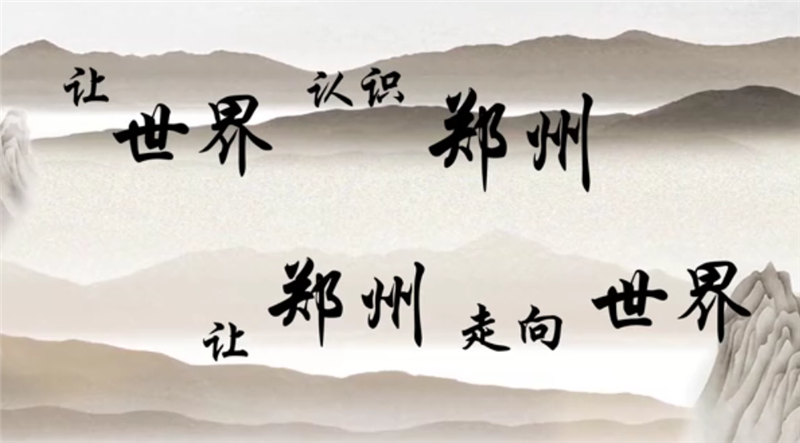 让世界认识郑州
让郑州走向世界